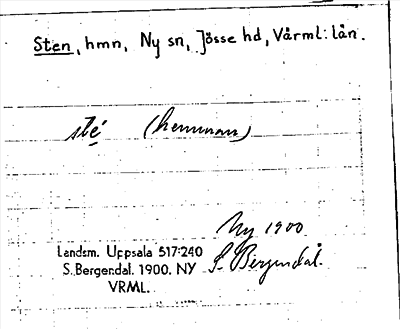 Sten, hmn, Ny sn, Jösse hd, Värml: lån.
sté (hemman)
Ny 1900
S. Bergendal.
Landsm. Uppsala 517:240
S. Bergendal. 1900. NY
VRML.